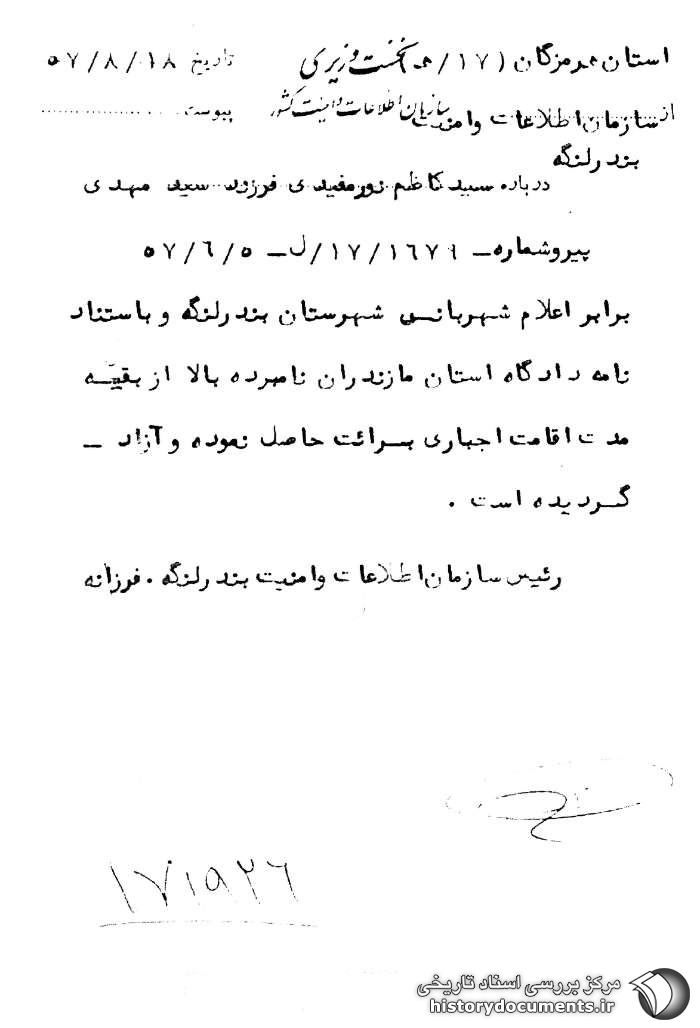 استان هرمزگان (۱۷/ه) نخست وزیری تاریخ ۵۷/۸/۱۸
از سازمان اطلاعات وامنیت سازمان اطلاعات و امنیت کشور پیوست
بندرلنگه
درباره سید کاظم نورمفیدی فرزند سعید مهدی
پیروشماره ـ ۱۶۷۹/۱۷/ل ـ ۵۷/۶/۵
برابر اعلام شهربانی شهرستان بندرلنگه و باستناد
نامه دادگاه استان مازندران نامبرده بالا از بقیّه
مدت اقامت اجباری برائت حاصل نموده و آزاد ـ
گردیده است .
رئیس سازمان اطلاعات وامنیت بندرلنگه . فرزانه
۱۷۱۹۲۶
مرکز بررسی اسناد تاریخی
historydocuments.ir